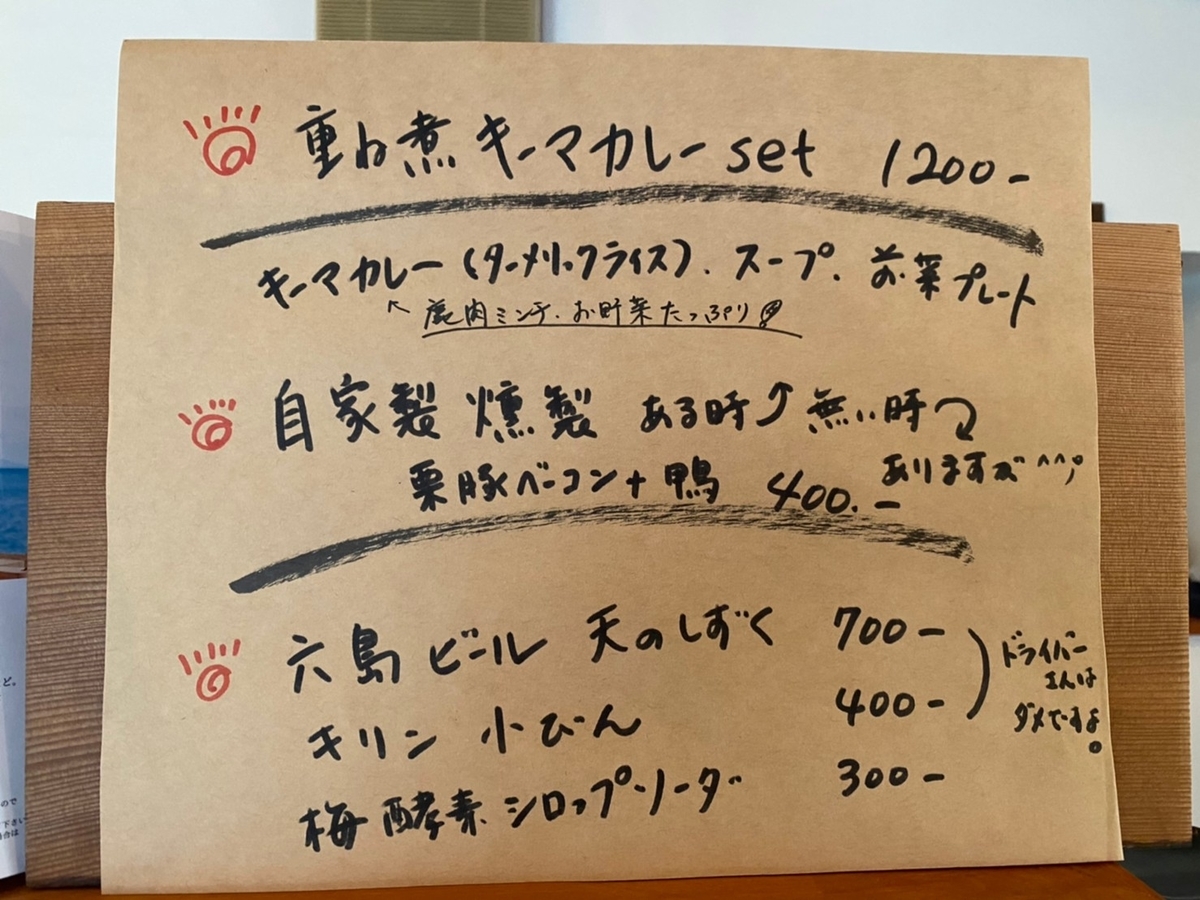 重ね煮 キーマカレー set 1200-
キーマカレー(ターメリックライス)、スープ、お菜プレート
↖鹿肉ミンチ、お野菜たっぷり
自家製 燻製 ある時⤴ 無い時⤵
ありますが^^;
栗豚ベーコン+鴨 400.-
六島ビール 天のしずく 700-
キリン 小びん 400-
ドライバー
さんは
ダメですよ。
梅酵素シロップソーダ 300-
ど。
ので
下さい
場合は